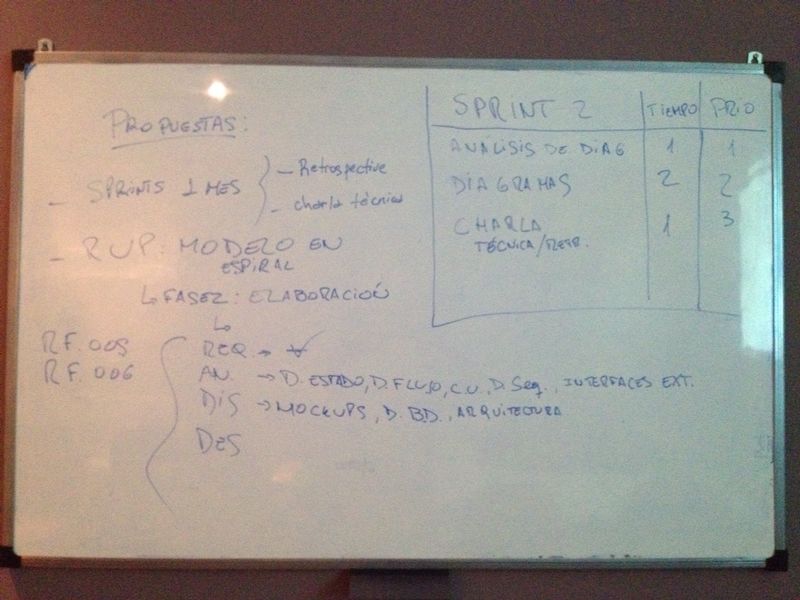 PROPUESTAS:
- SPRINTS 1 MES
- Retrospective
- charla técnica
- RUP: MODELO EN
ESPIRAL
↳ FASE2: ELABORACIÓN
↳
RF. 005
RF. 006
REQ →
AN. → D. ESTADO, D. FLUJO, C.U, D. Seq., INTERFACES EXT.
DIS → MOCKUPS, D. B.D., ARQUITECTURA
DES
SPRINT 2 TIEMPO PRIO
ANÁLISIS DE DIAG 1 1
DIAGRAMAS 2 2
CHARLA 1 3
TÉCNICA/RETR.